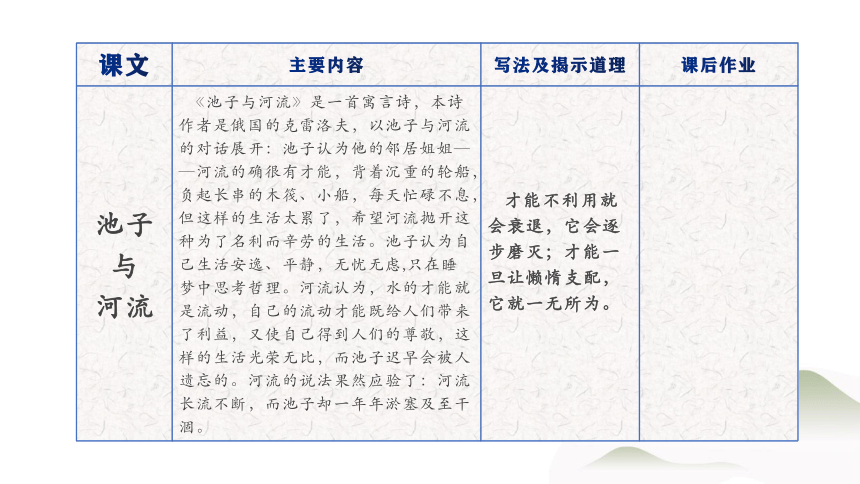 课文
主要内容
写法及揭示道理
课后作业
池子
与
河流
《池子与河流》是一首寓言诗，本诗
作者是俄国的克雷洛夫，以池子与河流
的对话展开：池子认为他的邻居姐姐—
—河流的确很有才能，背着沉重的轮船，
负起长串的木筏、小船，每天忙碌不息，
但这样的生活太累了，希望河流抛开这
种为了名利而辛劳的生活。池子认为自
己生活安逸、平静，无忧无虑,只在睡
梦中思考哲理。河流认为，水的才能就
是流动，自己的流动才能既给人们带来
了利益，又使自己得到人们的尊敬，这
样的生活光荣无比，而池子迟早会被人
遗忘的。河流的说法果然应验了：河流
长流不断，而池子却一年年淤塞及至干
涸。
才能不利用就
会衰退，它会逐
步磨灭；才能一
旦让懒惰支配，
它就一无所为。